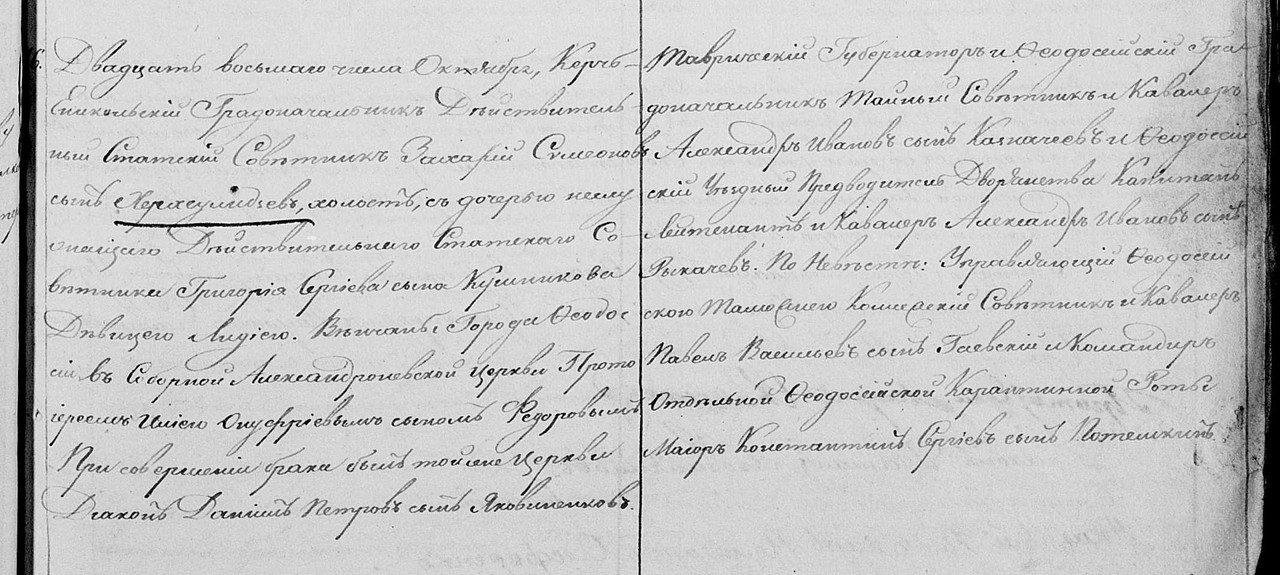 6.
Двадцать восьмаго числа Октября, Керчь-
Еникольскій Градоначальникъ Дѣйствитель-
ный Статскій Совѣтникъ Захарій Семеоновъ
сынъ Херхеулидзевъ, холостъ, съ дочерью
Дѣйствительнаго Статскаго Со-
вѣтника Григорія Сергіева сына Кушникова
Дѣвицею Лидіею. Вѣнчаны Города Ѳеодос
сіи въ Соборной Александроневской Церкви Прото
іереемъ Иліею Онуфріевымъ сыномъ Ѳедоровымъ
При совершеніи брака былъ той же Церкви
Діаконъ Даніилъ Петровъ сынъ Яковиненковъ.
Таврическій Губернаторъ и Ѳеодосійскій Гра-
доначальникъ Тайный Совѣтникъ и Кавалеръ
Александръ Ивановъ сынъ Казначеевъ и Ѳеодосій
скій Уѣздный Предводитель Дворянства Капитанъ
Лейтенантъ и Кавалеръ Александръ Ивановъ сынъ
Рыкачевъ. По Невѣстѣ: Управляющій Ѳеодосій
скою Таможнею Совѣтникъ и Кавалеръ
Павелъ Васильевъ сынъ Гаевскій и Командиръ
Отдѣльной Ѳеодосійской Карантинной Роты
Маіоръ Константинъ Сергіевъ сынъ Потемкинъ.